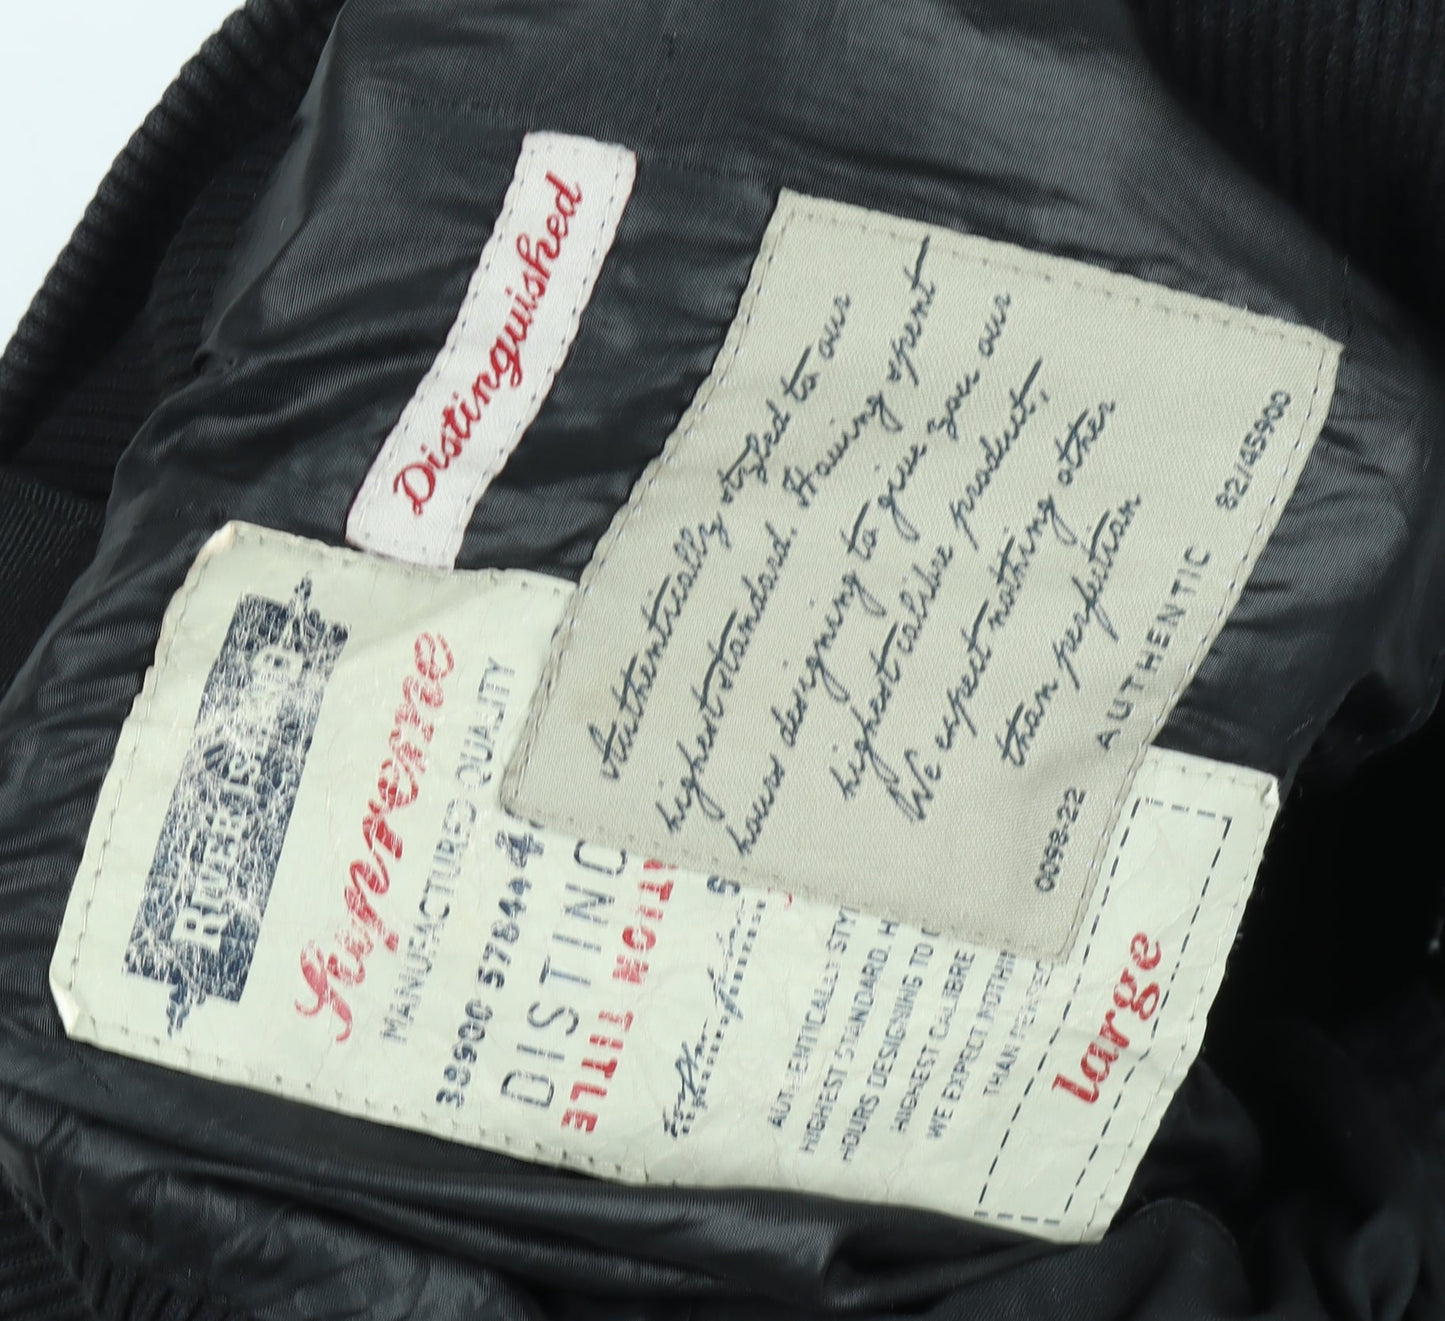 Distinguished
Authentically styled to our
highest standard. Having spent
hours designing to give you our
highest calibre product,
We expect nothing other
than perfection
0098-22 AUTHENTIC 82/45900
RIVER ISLAND
Supreme
MANUFACTURED QUALITY
38900 578444
DISTINC
TITLE
AUTHENTICALLY STY
HIGHEST STANDARD. H
HOURS DESIGNING TO G
HIGHEST CALIBRE
WE EXPECT NOTHIN
THAN PERFEC
large